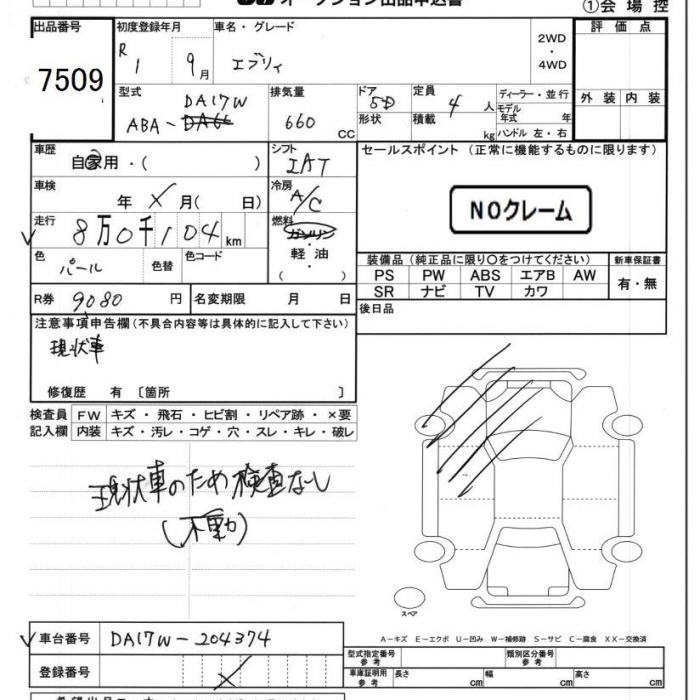 オークション出品申込書
①会場控
出品番号
7509
初度登録年月
R 1 9月
車名・グレード
エブリィ
2WD
・
4WD
評価点
外装 内装
型式
DA17W
ABA-DA64
排気量
660 cc
ドア
5D
形状
定員
4人
積載
kg
ディーラー・並行
モデル年式 年
ハンドル 左・右
車歴
自家用・( )
シフト
IAT
セールスポイント（正常に機能するものに限ります）
NOクレーム
車検
年 X 月( 日)
冷房
A/C
走行
8万0千104km
燃料
ガソリン
・
軽油
・
( )
色
パール
色替
色コード
装備品（純正品に限り○をつけてください）
PS PW ABS エアB AW
SR ナビ TV カワ
新車保証書
有・無
R券 9080 円
名変期限 月 日
後日品
注意事項申告欄（不具合内容等は具体的に記入して下さい）
現状車
修復歴 有 〔箇所 〕
検査員記入欄
FW キズ・飛石・ヒビ割・リペア跡・×要
内装 キズ・汚レ・コゲ・穴・スレ・キレ・破レ
現状車のため検査なし
(不動)
スペア
A－キズ E－エクボ U－凹み W－補修跡 S－サビ C－腐食 XX－交換済
車台番号
DA17W-204374
登録番号
X
型式指定番号
参考
類別区分番号
参考
車庫証明用
参考
長さ cm
幅 cm
高さ cm